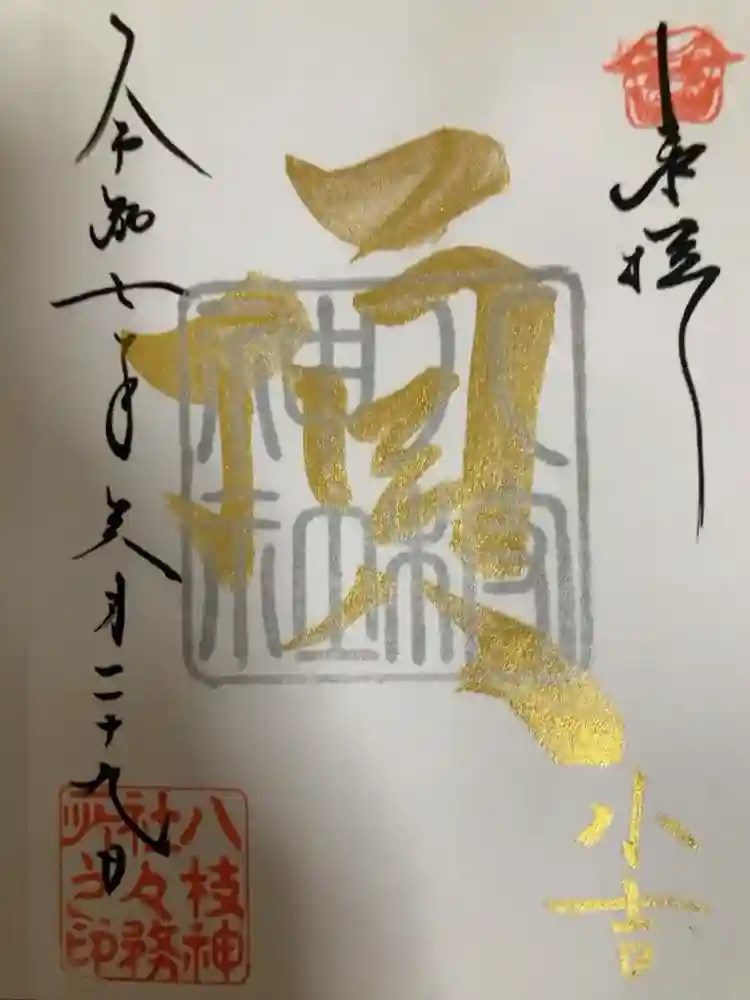 奉拝
八枝
神社
小吉
令和七年六月二十九日
八枝神
社々務
所之印